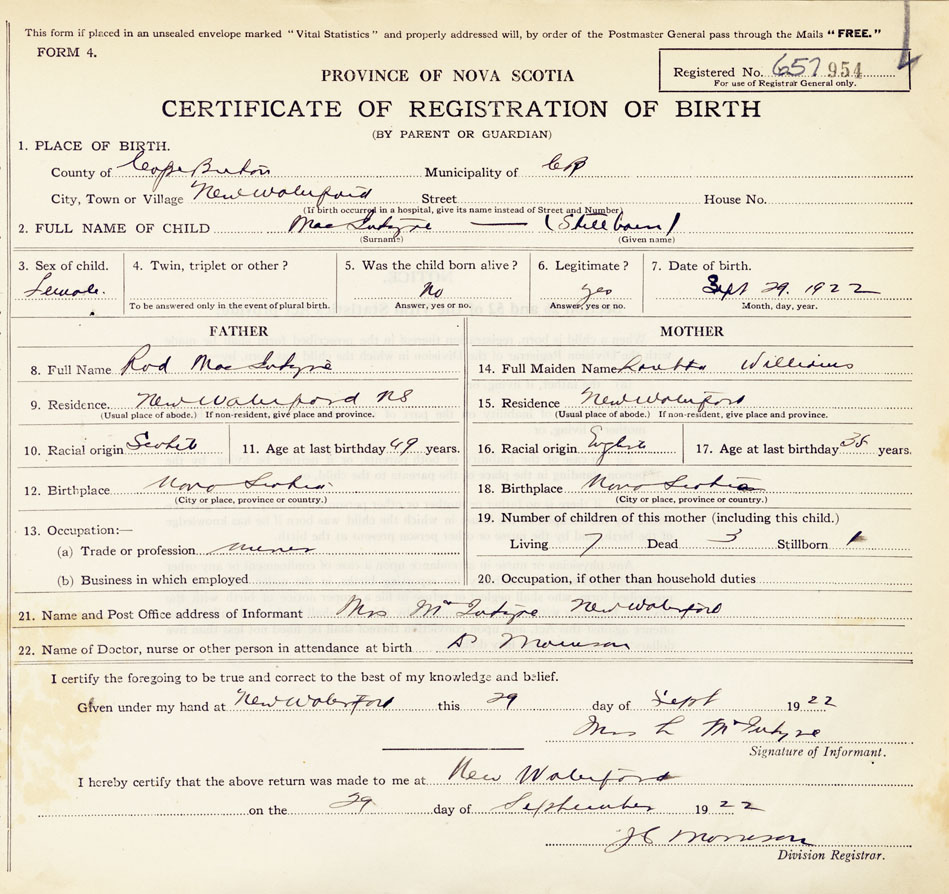 This form if placed in an unsealed envelope marked "Vital Statistics" and properly addressed will, by order of the Postmaster General pass through the Mails "FREE."
FORM 4.
Registered No. 657 954
For use of Registrar General only.
PROVINCE OF NOVA SCOTIA
CERTIFICATE OF REGISTRATION OF BIRTH
(BY PARENT OR GUARDIAN)
1. PLACE OF BIRTH.
County of Cape Breton Municipality of CB
City, Town or Village New Waterford Street House No.
(If birth occurred in a hospital, give its name instead of Street and Number)
2. FULL NAME OF CHILD MacIntyre — (Stillborn)
(Surname) (Given name)
3. Sex of child. 4. Twin, triplet or other? 5. Was the child born alive? 6. Legitimate? 7. Date of birth.
Female. No yes Sept 29. 1922
To be answered only in the event of plural birth. Answer, yes or no. Answer, yes or no. Month, day, year.
FATHER MOTHER
8. Full Name Rod MacIntyre 14. Full Maiden Name Loretta Williams
9. Residence. New Waterford NS 15. Residence New Waterford
(Usual place of abode.) If non-resident, give place and province. (Usual place of abode.) If non-resident, give place and province.
10. Racial origin Scotch 11. Age at last birthday 49 years. 16. Racial origin English 17. Age at last birthday 38 years.
12. Birthplace Nova Scotia 18. Birthplace Nova Scotia
(City or place, province or country.) (City or place, province or country.)
13. Occupation:— 19. Number of children of this mother (including this child.)
(a) Trade or profession miner Living 7 Dead 3 Stillborn 1
(b) Business in which employed 20. Occupation, if other than household duties
21. Name and Post Office address of Informant Mrs McIntyre New Waterford
22. Name of Doctor, nurse or other person in attendance at birth Dr Morrison
I certify the foregoing to be true and correct to the best of my knowledge and belief.
Given under my hand at New Waterford this 29 day of Sept 1922
Mrs L McIntyre
Signature of Informant.
I hereby certify that the above return was made to me at New Waterford
on the 29 day of September 1922
JC Morrison
Division Registrar.